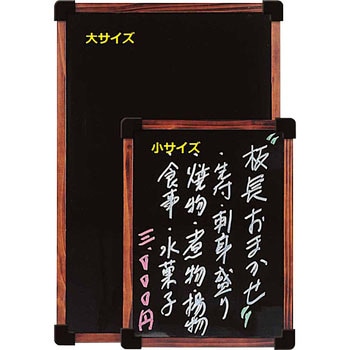 大サイズ
小サイズ
"板長おまかせ"
・先付・刺身盛り
・焼物・煮物・揚物
・食事・水菓子
三、〇〇〇円